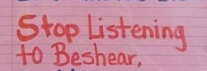 Stop Listening
to Beshear,